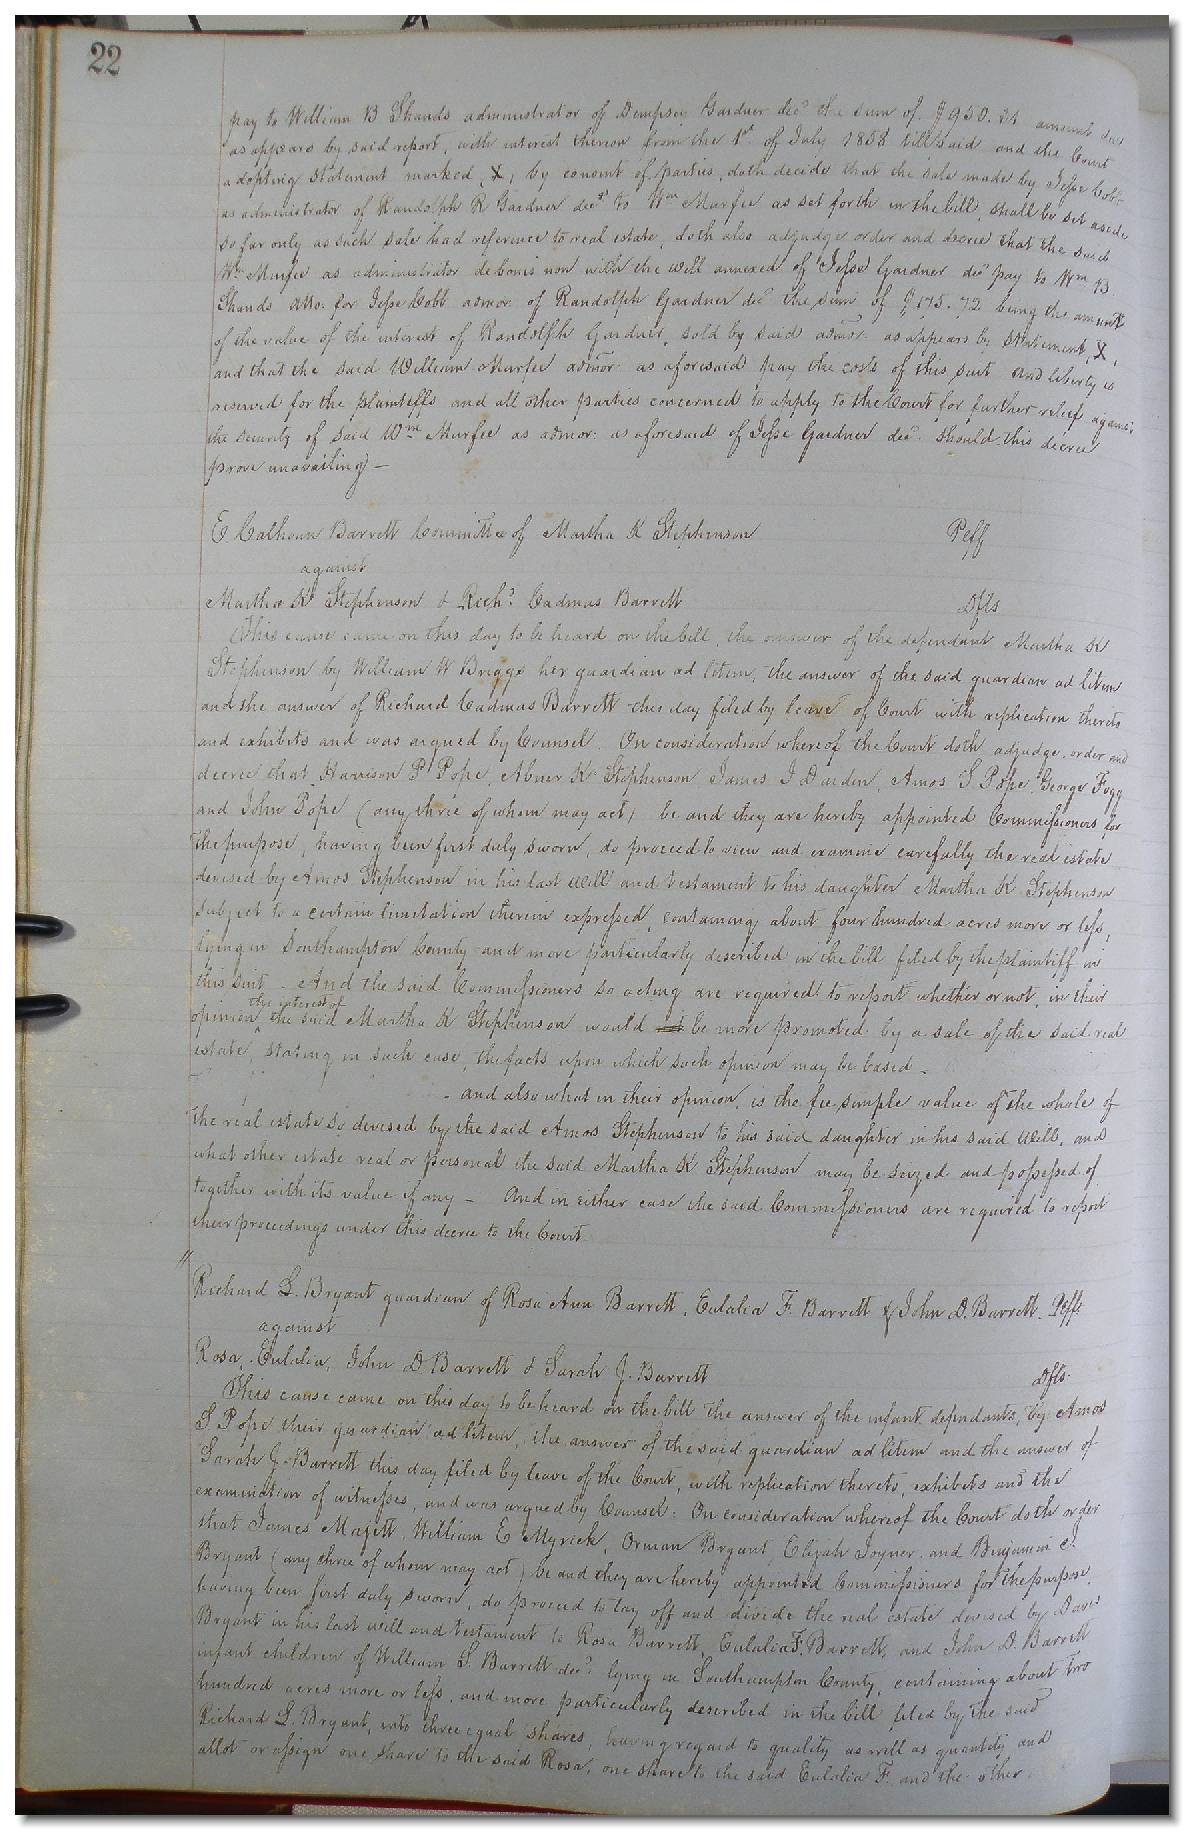 22
pay to William B Shands administrator of Dempsey Gardner decd the sum of $950.21 amount due
as appears by said report, with interest thereon from the 1st of July 1858 till paid and the Court
adopting statement marked, X, by consent of parties, doth decide that the sale made by Jesse Cobb
as administrator of Randolph R Gardner decd to Wm Murfee as set forth in the bill shall be set aside
so far only as such sale had reference to real estate, doth also adjudge order and decree that the said
Wm Murfee as administrator de bonis non with the will annexed of Jesse Gardner decd pay to Wm B
Shands atto. for Jesse Cobb admor of Randolph Gardner decd the sum of $175.72 being the amount
of the value of the interest of Randolph Gardner, sold by said admor as appears by statement, X,
and that the said William Murfee admor as aforesaid pay the costs of this suit and liberty is
reserved for the plaintiffs and all other parties concerned to apply to the Court for further relief against
the security of said Wm Murfee as admor: as aforesaid of Jesse Gardner decd. should this decree
prove unavailing —
E Calhoun Barrett Committee of Martha K Stephenson Pltff
against
Martha K Stephenson & Richd. Cadmus Barrett Dfts
This cause came on this day to be heard on the bill, the answer of the defendant Martha K
Stephenson by William W Briggs her guardian ad litem, the answer of the said guardian ad litem
and the answer of Richard Cadmus Barrett this day filed by leave of Court with replication thereto
and exhibits and was argued by Counsel. On consideration whereof the Court doth adjudge, order and
decree that Harrison P Pope, Abner K Stephenson James J Darden, Amos S Pope George Fogg
and John Pope (any three of whom may act) be and they are hereby appointed Commissioners for
the purpose, having been first duly sworn, do proceed to view and examine carefully the real estate
devised by Amos Stephenson in his last Will and testament to his daughter Martha K Stephenson
subject to a certain limitation therein expressed, containing about four hundred acres more or less,
lying in Southampton County and more particularly described in the bill filed by the plaintiff in
this suit - And the said Commissioners so acting are required to report whether or not, in their
opinion the interest of the said Martha K Stephenson would be more promoted by a sale of the said real
estate, stating in such case, the facts upon which such opinion may be based -
- and also what in their opinion, is the fee simple value of the whole of
the real estate so devised by the said Amos Stephenson to his said daughter in his said Will, and
what other estate real or personal the said Martha K Stephenson may be seized and possessed of
together with its value if any - And in either case the said Commissioners are required to report
their proceedings under this decree to the Court.
"
Richard L. Bryant guardian of Rosa Ann Barrett, Eulalia F. Barrett & John D. Barrett. Pltffs
against
Rosa, Eulalia, John D Barrett & Sarah J. Barrett Dfts.
This cause came on this day to be heard on the bill the answer of the infant dependants, by Amos
S Pope their guardian ad litem, the answer of the said guardian ad litem and the answer of
Sarah J. Barrett this day filed by leave of the Court, with replication thereto, exhibits and the
examination of witnesses, and was argued by Counsel: On consideration whereof the Court doth order
that James Majett, William E Myrick, Orman Bryant, Elijah Joyner, and Benjamin J.
Bryant (any three of whom may act) be and they are hereby appointed Commissioners for the purpose,
having been first duly sworn, do proceed to lay off and divide the real estate devised by Davis
Bryant in his last will and testament to Rosa Barrett, Eulalia F. Barrett, and John D. Barrett
infant children of William S. Barrett decd. lying in Southampton County, containing about two
hundred acres more or less, and more particularly described in the bill filed by the said
Richard L. Bryant, into three equal shares, having regard to quality as well as quantity and
allot or assign one share to the said Rosa, one share to the said Eulalia F. and the other